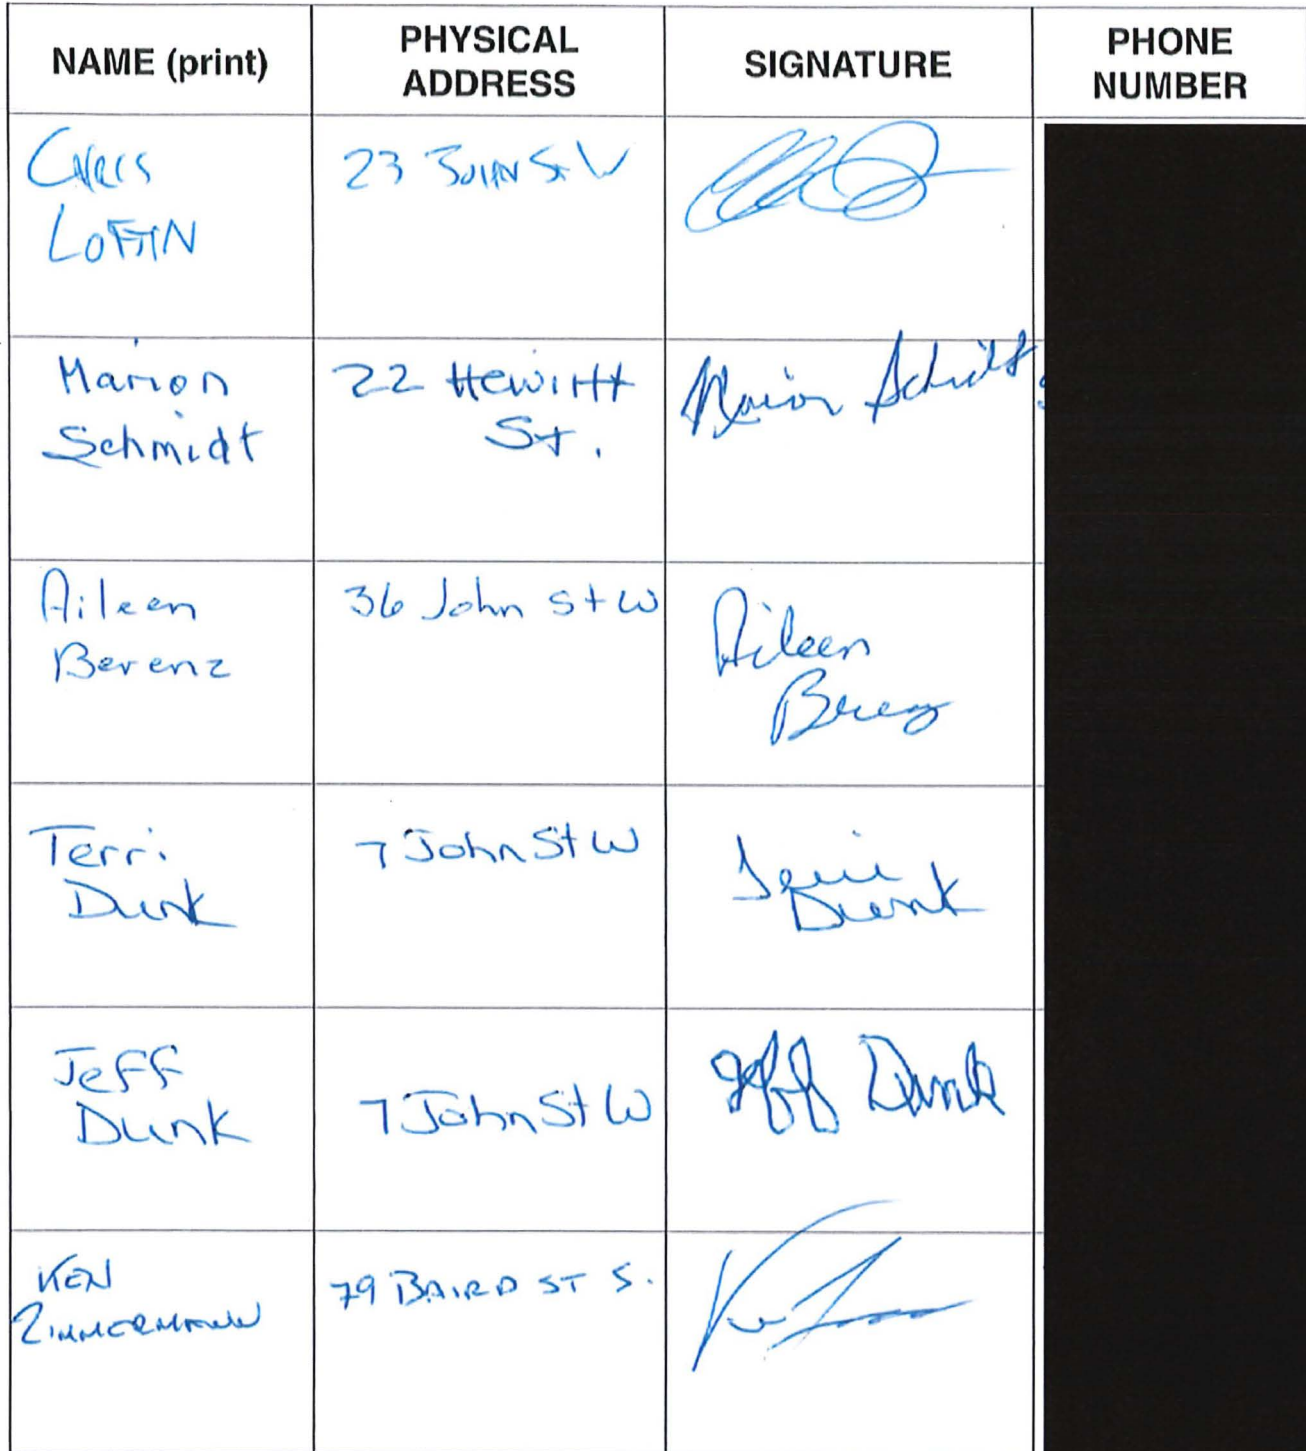 NAME (print)
PHYSICAL
ADDRESS
SIGNATURE
PHONE
NUMBER
CHRIS
LOFTIN
23 JOHN St W
Marion
Schmidt
22 Hewitt
St.
Marion Schmidt
Aileen
Berenz
36 John St W
Aileen
Berenz
Terri
Dunk
7 John St W
Terri
Dunk
Jeff
Dunk
7 John St W
Jeff Dunk
KEN
ZIMMERMANN
79 BAIRD ST S.